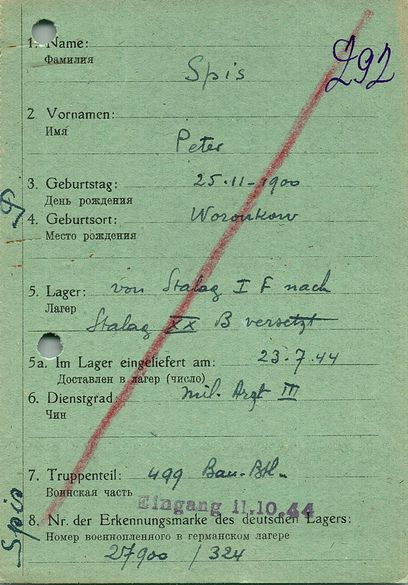 292
1. Name:
Фамилия
Spis
2 Vornamen:
Имя
Peter
3. Geburtstag: 25.11-1900
День рождения
4. Geburtsort: Woronkow
Место рождения
5. Lager: von Stalag I F nach
Лагер
Stalag XX B versetzt
5a. Im Lager eingeliefert am: 23.7.44
Доставлен в лагер (число)
6. Dienstgrad: mil. Arzt III
Чин
7. Truppenteil: 499 Bau-Btl.
Воинская часть
Eingang 11.10.44
8. Nr. der Erkennungsmarke des deutschen Lagers:
Номер военнопленного в германском лагере
27900 / 324
Spis